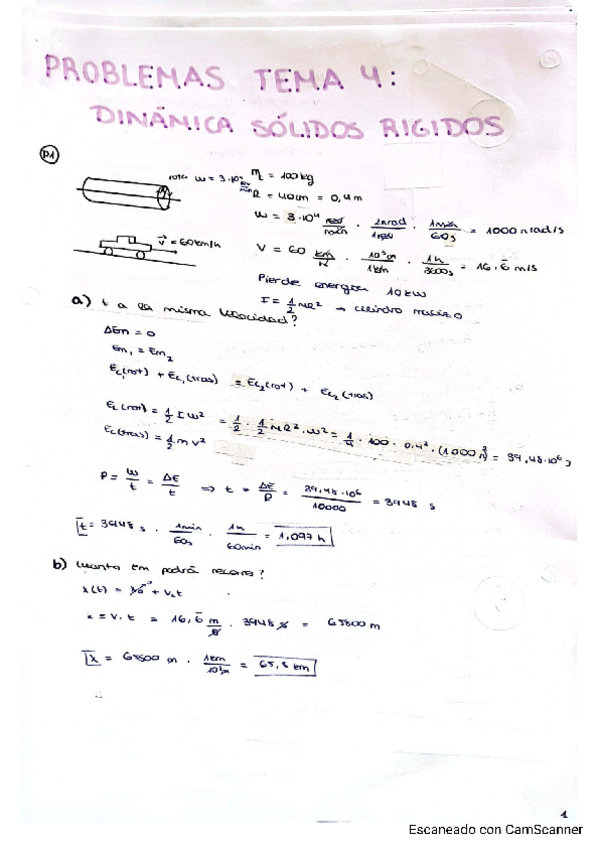 PROBLEMAS TEMA 4:
DINÁMICA SÓLIDOS RIGIDOS
P1
rota w = 3·10⁴ rev/min
M = 100 kg
R = 40cm = 0,4 m
w = 3·10⁴ rev/min · 2πrad/1rev · 1min/60s = 1000 π rad/s
v = 60km/h
V = 60 km/h · 10³m/1km · 1h/3600s = 16,6 m/s
Pierde energía 10 kW
I = 1/2 MR² → cilindro macizo
a) t a la misma velocidad?
ΔEm = 0
Em₁ = Em₂
Ec₁(rot) + Ec₁(tras) = Ec₂(rot) + Ec₂(tras)
Ec(rot) = 1/2 I w² = 1/2 · 1/2 MR² · w² = 1/4 · 100 · 0,4² · (1000 π)² = 39,48·10⁶ J
Ec(tras) = 1/2 m v²
P = W/t = ΔE/t ⇒ t = ΔE/P = 39,48·10⁶/10000 = 3948 s
t = 3948 s · 1min/60s · 1h/60min = 1,097 h
b) Cuanto km podrá recorrer?
x(t) = x₀ + v₀t
x = v·t = 16,6 m/s · 3948 s = 65800 m
x = 65800 m · 1km/10³m = 65,8 km
1
Escaneado con CamScanner